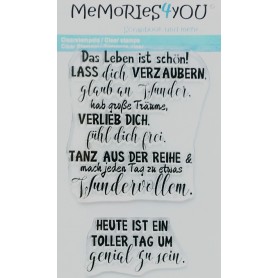 MeMORieS4YOU
Das Leben ist schön!
LASS dich VERZAUBERN,
glaub an Wunder,
hab große Träume,
VERLIEB DICH,
fühl dich frei,
TANZ AUS DER REIHE &
mach jeden Tag zu etwas
Wundervollem.
HEUTE IST EIN
TOLLER TAG UM
genial zu sein.